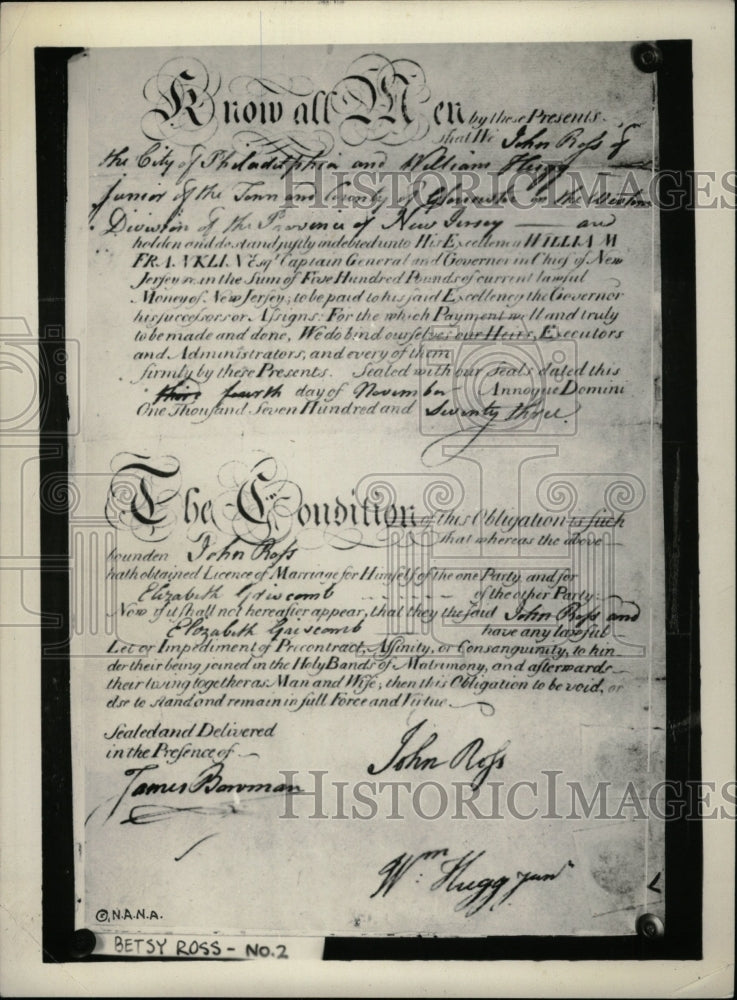 Know all Men by these Presents.
that We John Ross of
the City of Philadelphia and William Hugg
Junior of the Town and County of in the Western
Division of the Province of New Jersey — and
holden and do stand justly indebted unto His Excellency WILLIAM
FRANKLIN Esqr. Captain General and Governor in Chief of New
Jersey in the Sum of Five Hundred Pounds of current lawful
Money of New Jersey; to be paid to his said Excellency the Governor
his successors or Assigns: For the which Payment well and truly
to be made and done, We do bind ourselves our Heirs, Executors
and Administrators, and every of them
firmly by these Presents. Sealed with our Seals dated this
fourth day of November Annoque Domini
One Thousand Seven Hundred and Seventy three.
The Condition of this Obligation is such
that whereas the above
bounden John Ross
hath obtained Licence of Marriage for Himself of the one Party, and for
Elizabeth Griscomb - - - - - - of the other Party:
Now if it shall not hereafter appear, that they the said John Ross and
Elizabeth Griscomb have any lawful
Let or Impediment of Precontract, Affinity, or Consanguinity, to hin-
der their being joined in the Holy Bands of Matrimony, and afterwards
their living together as Man and Wife; then this Obligation to be void, or
else to stand and remain in full Force and Virtue
Sealed and Delivered
in the Presence of
James Bowman
John Ross
Wm. Hugg junr
©.N.A.N.A.
BETSY ROSS - NO. 2
HISTORIC IMAGES
HISTORIC IMAGES